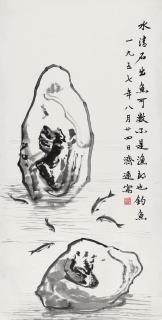 水清石出魚可數不是漁郎也釣魚
一九五七年八月廿四日濟遠寫